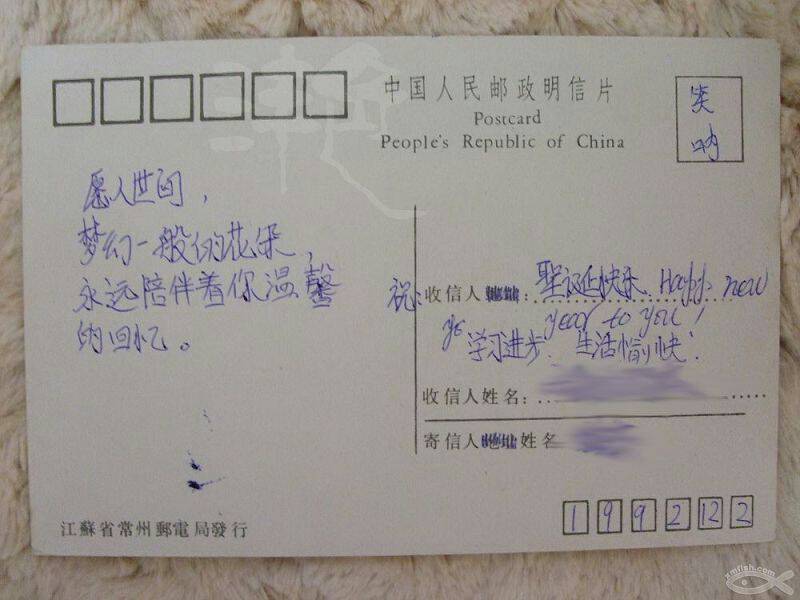 中国人民邮政明信片
Postcard
People's Republic of China
愿人世间，
梦幻一般的花朵，
永远陪伴着你温馨
的回忆。
祝：收信人地址：圣诞快乐. Happy new
year to you！
学习进步. 生活愉快.
收信人姓名：
寄信人地址姓名
江蘇省常州郵電局發行
1 9 9 2 12 2
xmfish.com